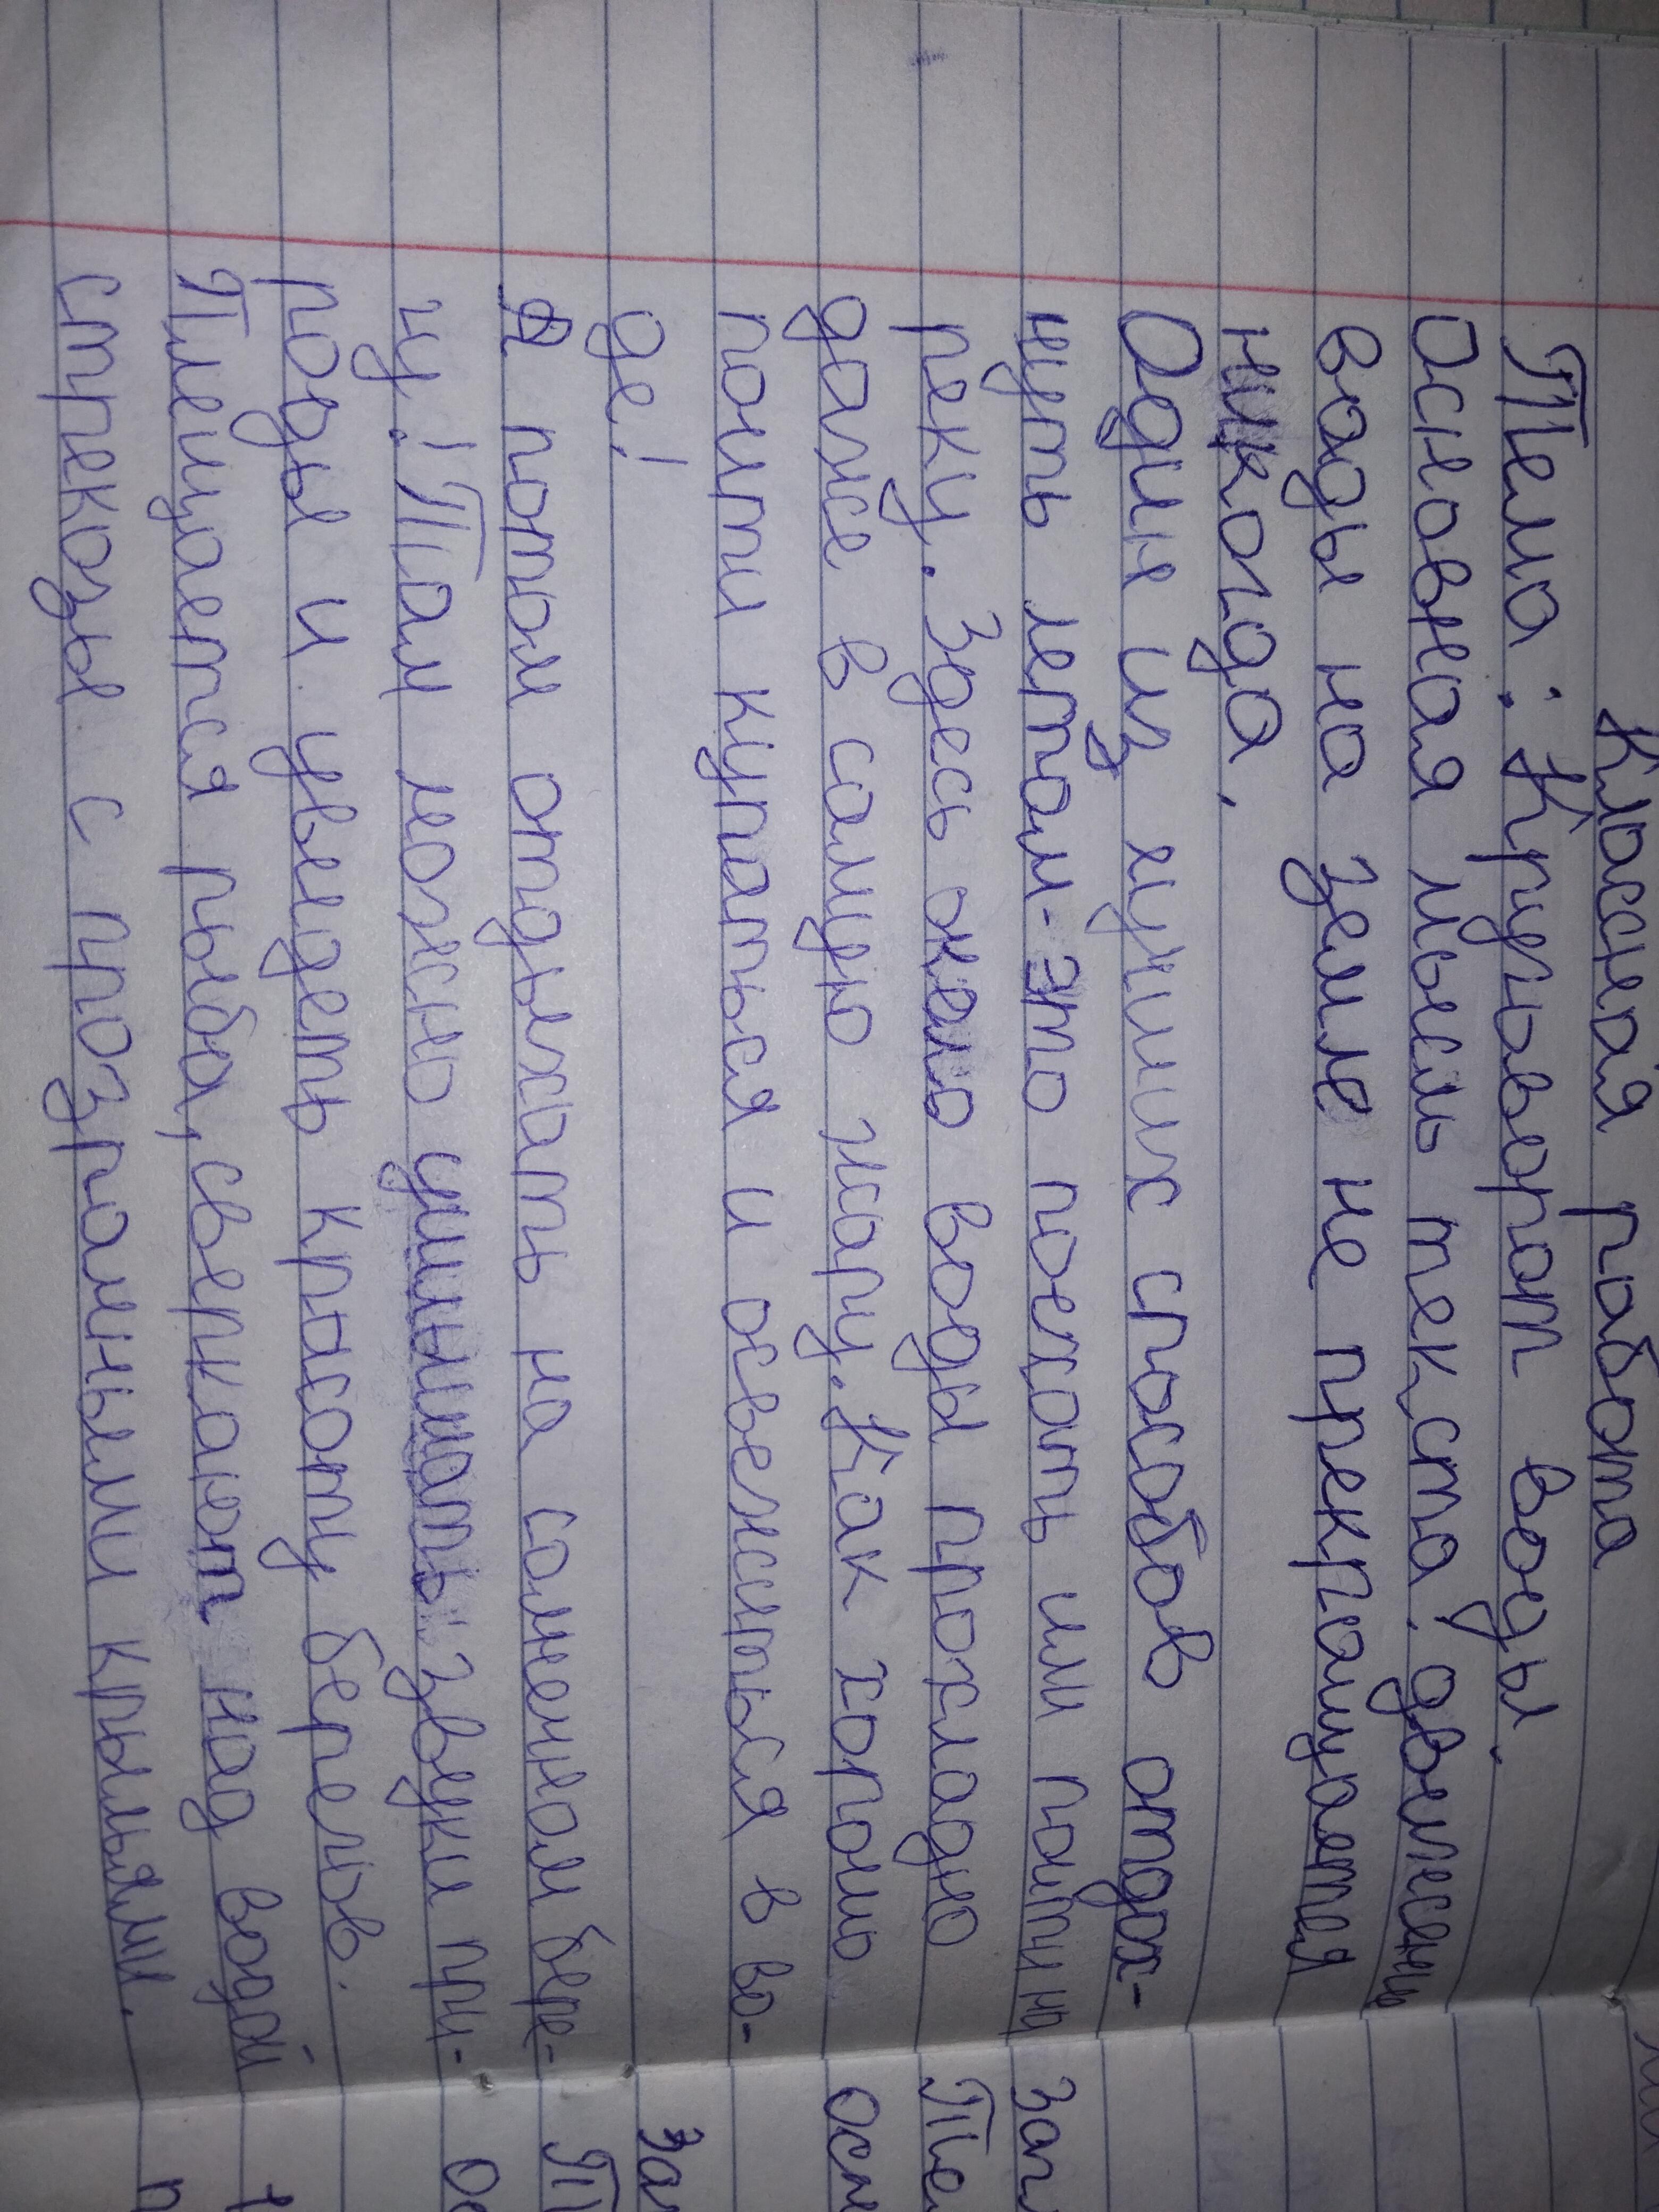 Классная работа
Тема: Круговорот воды.
Основная мысль текста: движение
воды на земле не прекращается
никогда.
Один из лучших способов отдох-
нуть летом-это поехать или пойти на
реку. Здесь около воды прохладно
даже в самую жару. Как хорошо
пойти купаться и освежиться в во-
де!
А потом отдыхать на солнечном бере-
гу! Там можно услышать звуки при-
роды и увидеть красоту берегов.
Плещется рыба, сверкают над водой
стрекозы с прозрачными крыльями.
Заг
Те
осн
За
Т
Ос